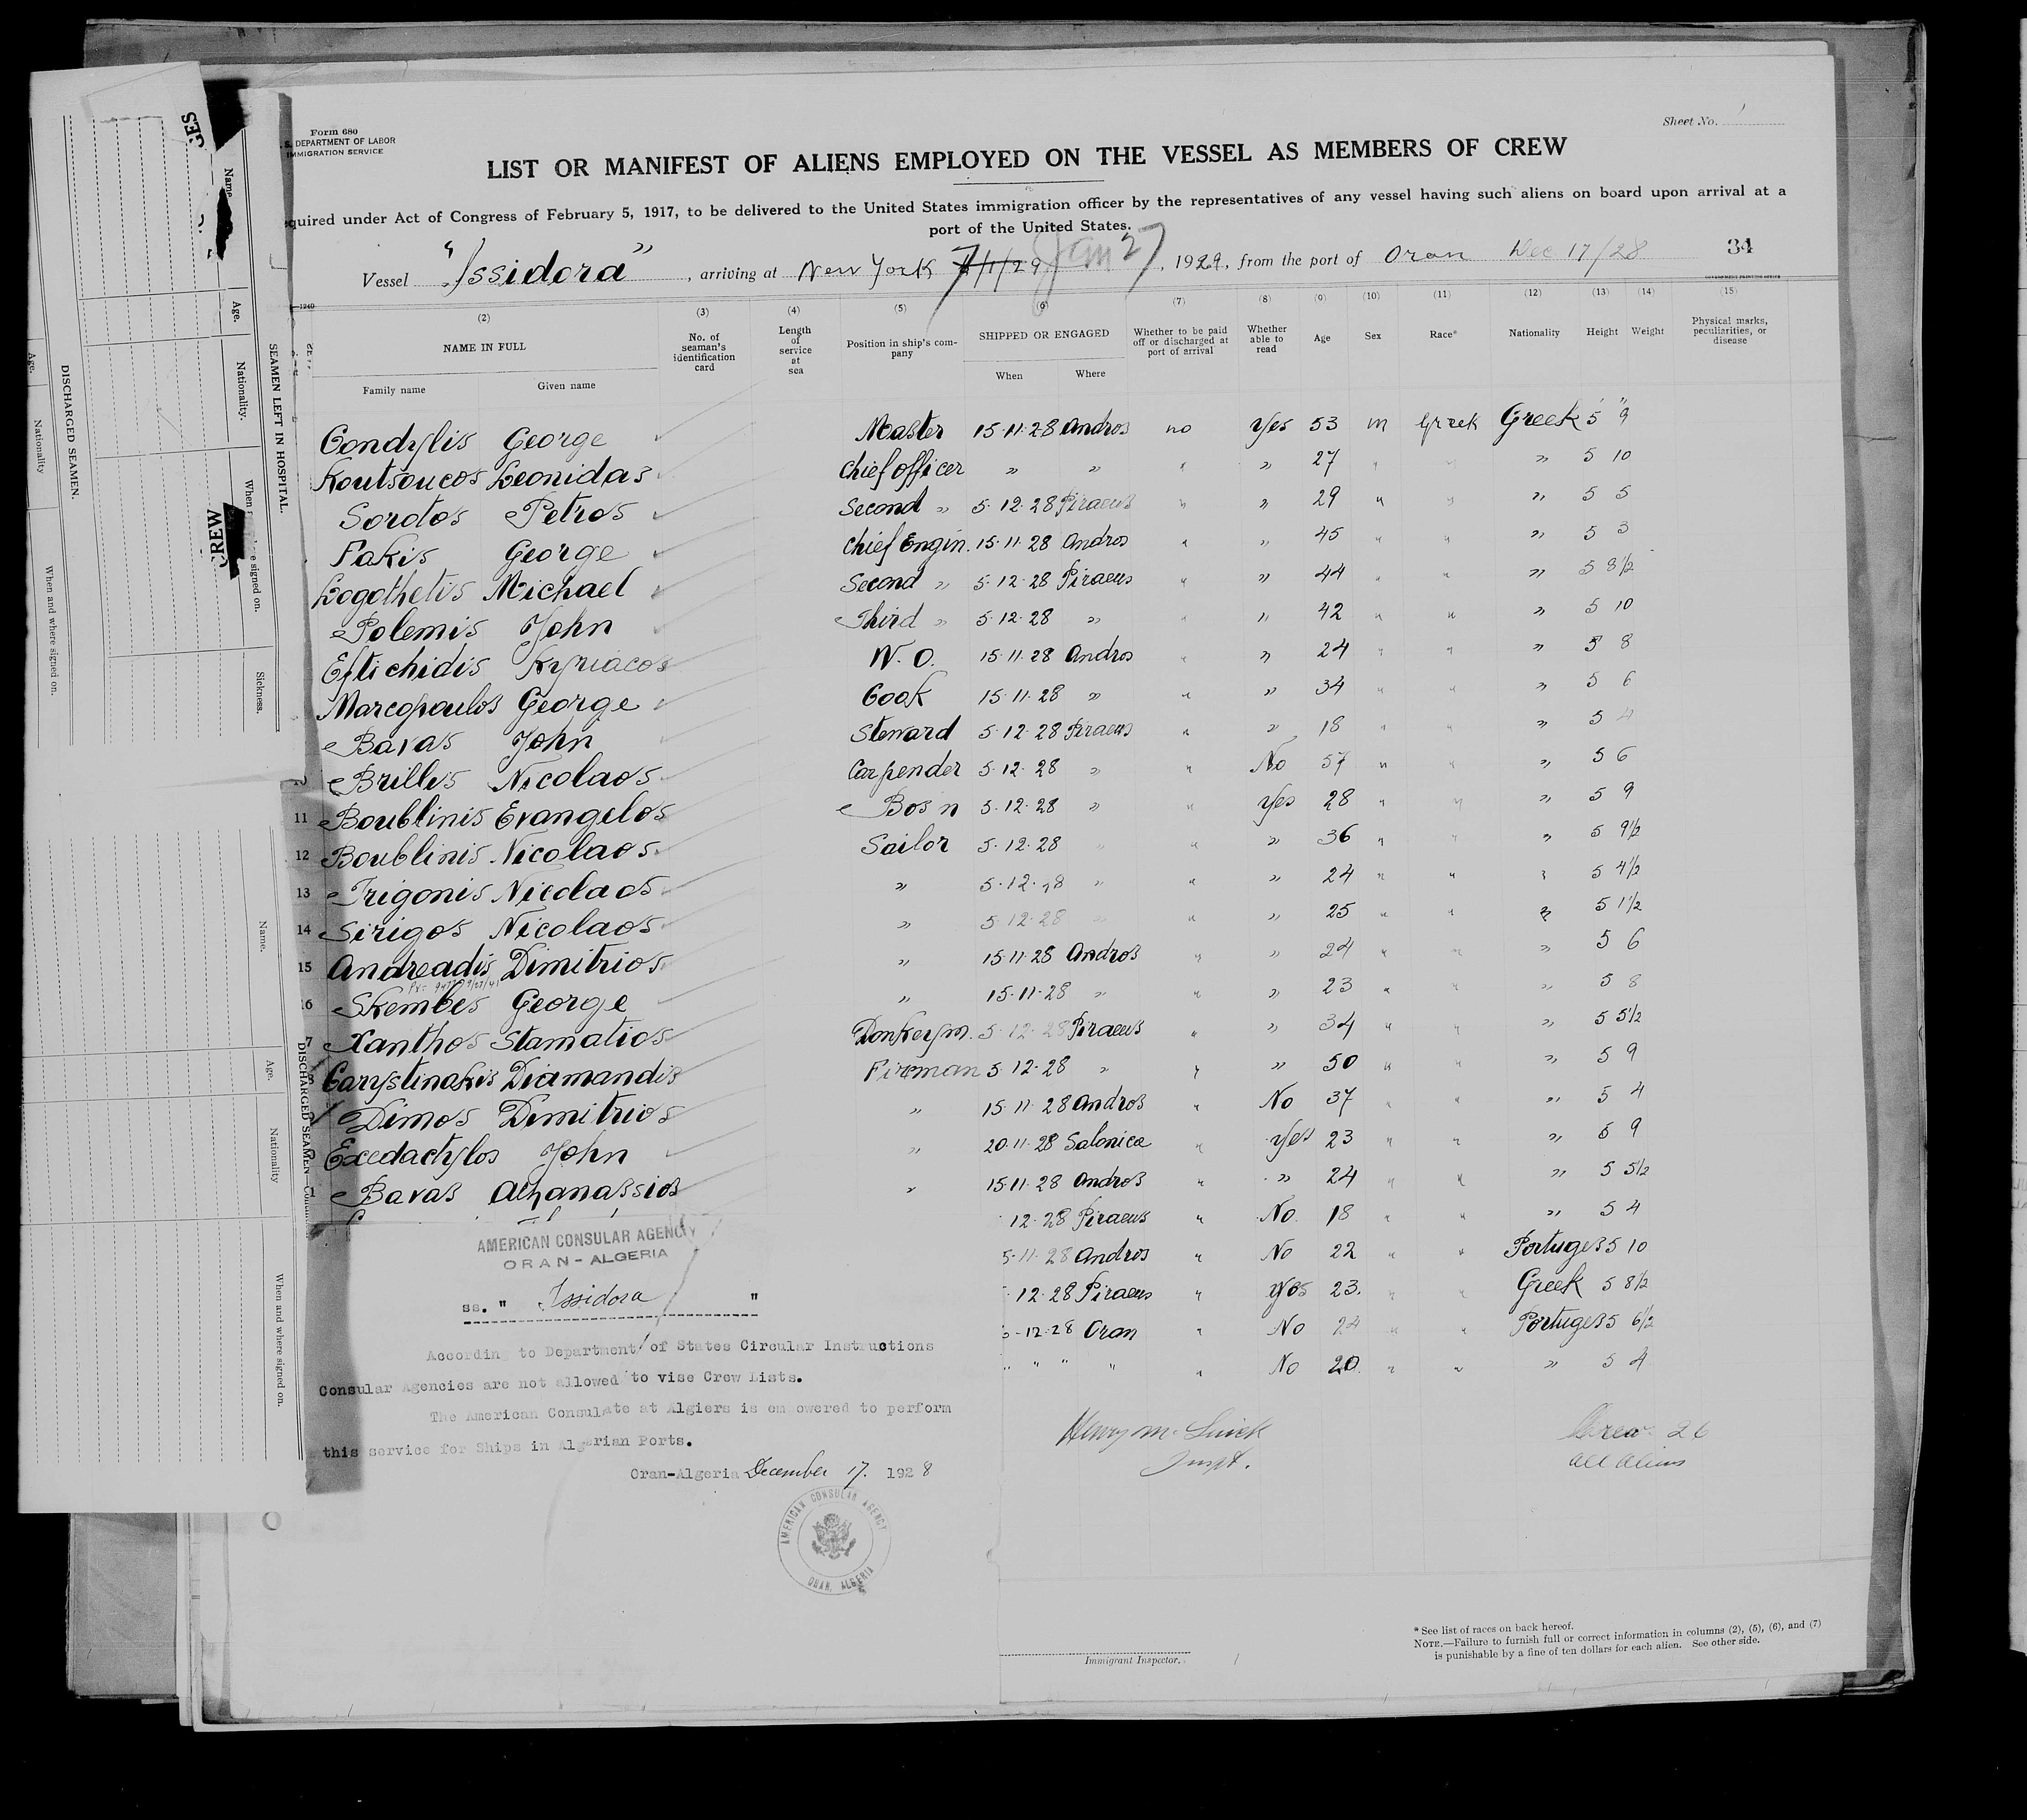 Form 680
U. S. DEPARTMENT OF LABOR
IMMIGRATION SERVICE
Sheet No.
LIST OR MANIFEST OF ALIENS EMPLOYED ON THE VESSEL AS MEMBERS OF CREW
quired under Act of Congress of February 5, 1917, to be delivered to the United States immigration officer by the representatives of any vessel having such aliens on board upon arrival at a
port of the United States.
Vessel "Issidora", arriving at New York 7/1/29 Jan 27, 1929, from the port of Oran Dec 17/28 34
(2) (3) (4) (5) (6) (7) (8) (9) (10) (11) (12) (13) (14) (15)
NAME IN FULL
Family name Given name
No. of seaman's identification card
Length of service at sea
Position in ship's company
SHIPPED OR ENGAGED
When Where
Whether to be paid off or discharged at port of arrival
Whether able to read
Age Sex Race* Nationality Height Weight
Physical marks, peculiarities, or disease
Condylis George Master 15·11·28 Andros no Yes 53 m Greek Greek 5' 9"
Koutsoucos Leonidas Chief officer " " " " 27 " " " 5 10
Sorotos Petros Second " 5·12·28 Piraeus " " 29 " " " 5 5
Fakis George Chief Engin. 15·11·28 Andros " " 45 " " " 5 3
Logothetis Michael Second " 5·12·28 Piraeus " " 44 " " " 5 8½
Polemis John Third " 5·12·28 " " " 42 " " " 5 10
Eftichidis Kyriacos W. O. 15·11·28 Andros " " 24 " " " 5 8
Marcopoulos George Cook 15·11·28 " " " 34 " " " 5 6
Bavas John Steward 5·12·28 Piraeus " " 18 " " " 5 4
10 Brillis Nicolaos Carpender 5·12·28 " " No 57 " " " 5 6
11 Boublinis Evangelos Bos'n 5·12·28 " " Yes 28 " " " 5 9
12 Boublinis Nicolaos Sailor 5·12·28 " " " 36 " " " 5 9½
13 Trigonis Nicolaos " 5·12·28 " " " 24 " " " 5 4½
14 Sirigos Nicolaos " 5·12·28 " " " 25 " " " 5 1½
15 Andreadis Dimitrios " 15·11·28 Andros " " 24 " " " 5 6
6 Skembes George " 15·11·28 " " " 23 " " " 5 8
7 Xanthos Stamatios Donkeym. 5·12·28 Piraeus " " 34 " " " 5 5½
Carystinakis Diamandis Fireman 5·12·28 " " " 50 " " " 5 9
Dimos Dimitrios " 15·11·28 Andros " No 37 " " " 5 4
Exedactylos John " 20·11·28 Salonica " Yes 23 " " " 5 9
1 Bavas Athanassios " 15·11·28 Andros " " 24 " " " 5 5½
12·28 Piraeus " No 18 " " " 5 4
5·11·28 Andros " No 22 " " Portuges 5 10
12·28 Piraeus " Yes 23 " " Greek 5 8½
-12·28 Oran " No 24 " " Portuges 5 6½
" " " " " No 20 " " " 5 4
AMERICAN CONSULAR AGENCY
ORAN - ALGERIA
ss. " Issidora "
According to Department of States Circular Instructions
Consular Agencies are not allowed to vise Crew Lists.
The American Consulate at Algiers is em owered to perform
this service for Ships in Algerian Ports.
Oran-Algeria December 17. 1928
AMERICAN CONSULAR AGENCY
ORAN, ALGERIA
Inspt.
Crew 26
all aliens
Immigrant Inspector.
* See list of races on back hereof.
NOTE.—Failure to furnish full or correct information in columns (2), (5), (6), and (7)
is punishable by a fine of ten dollars for each alien. See other side.
SEAMEN LEFT IN HOSPITAL.
Name Age. Nationality. Sickness.
DISCHARGED SEAMEN.
Age. Nationality When and where signed on.
CREW
GES
DISCHARGED SEAMEN
Name. Age. Nationality When and where signed on.